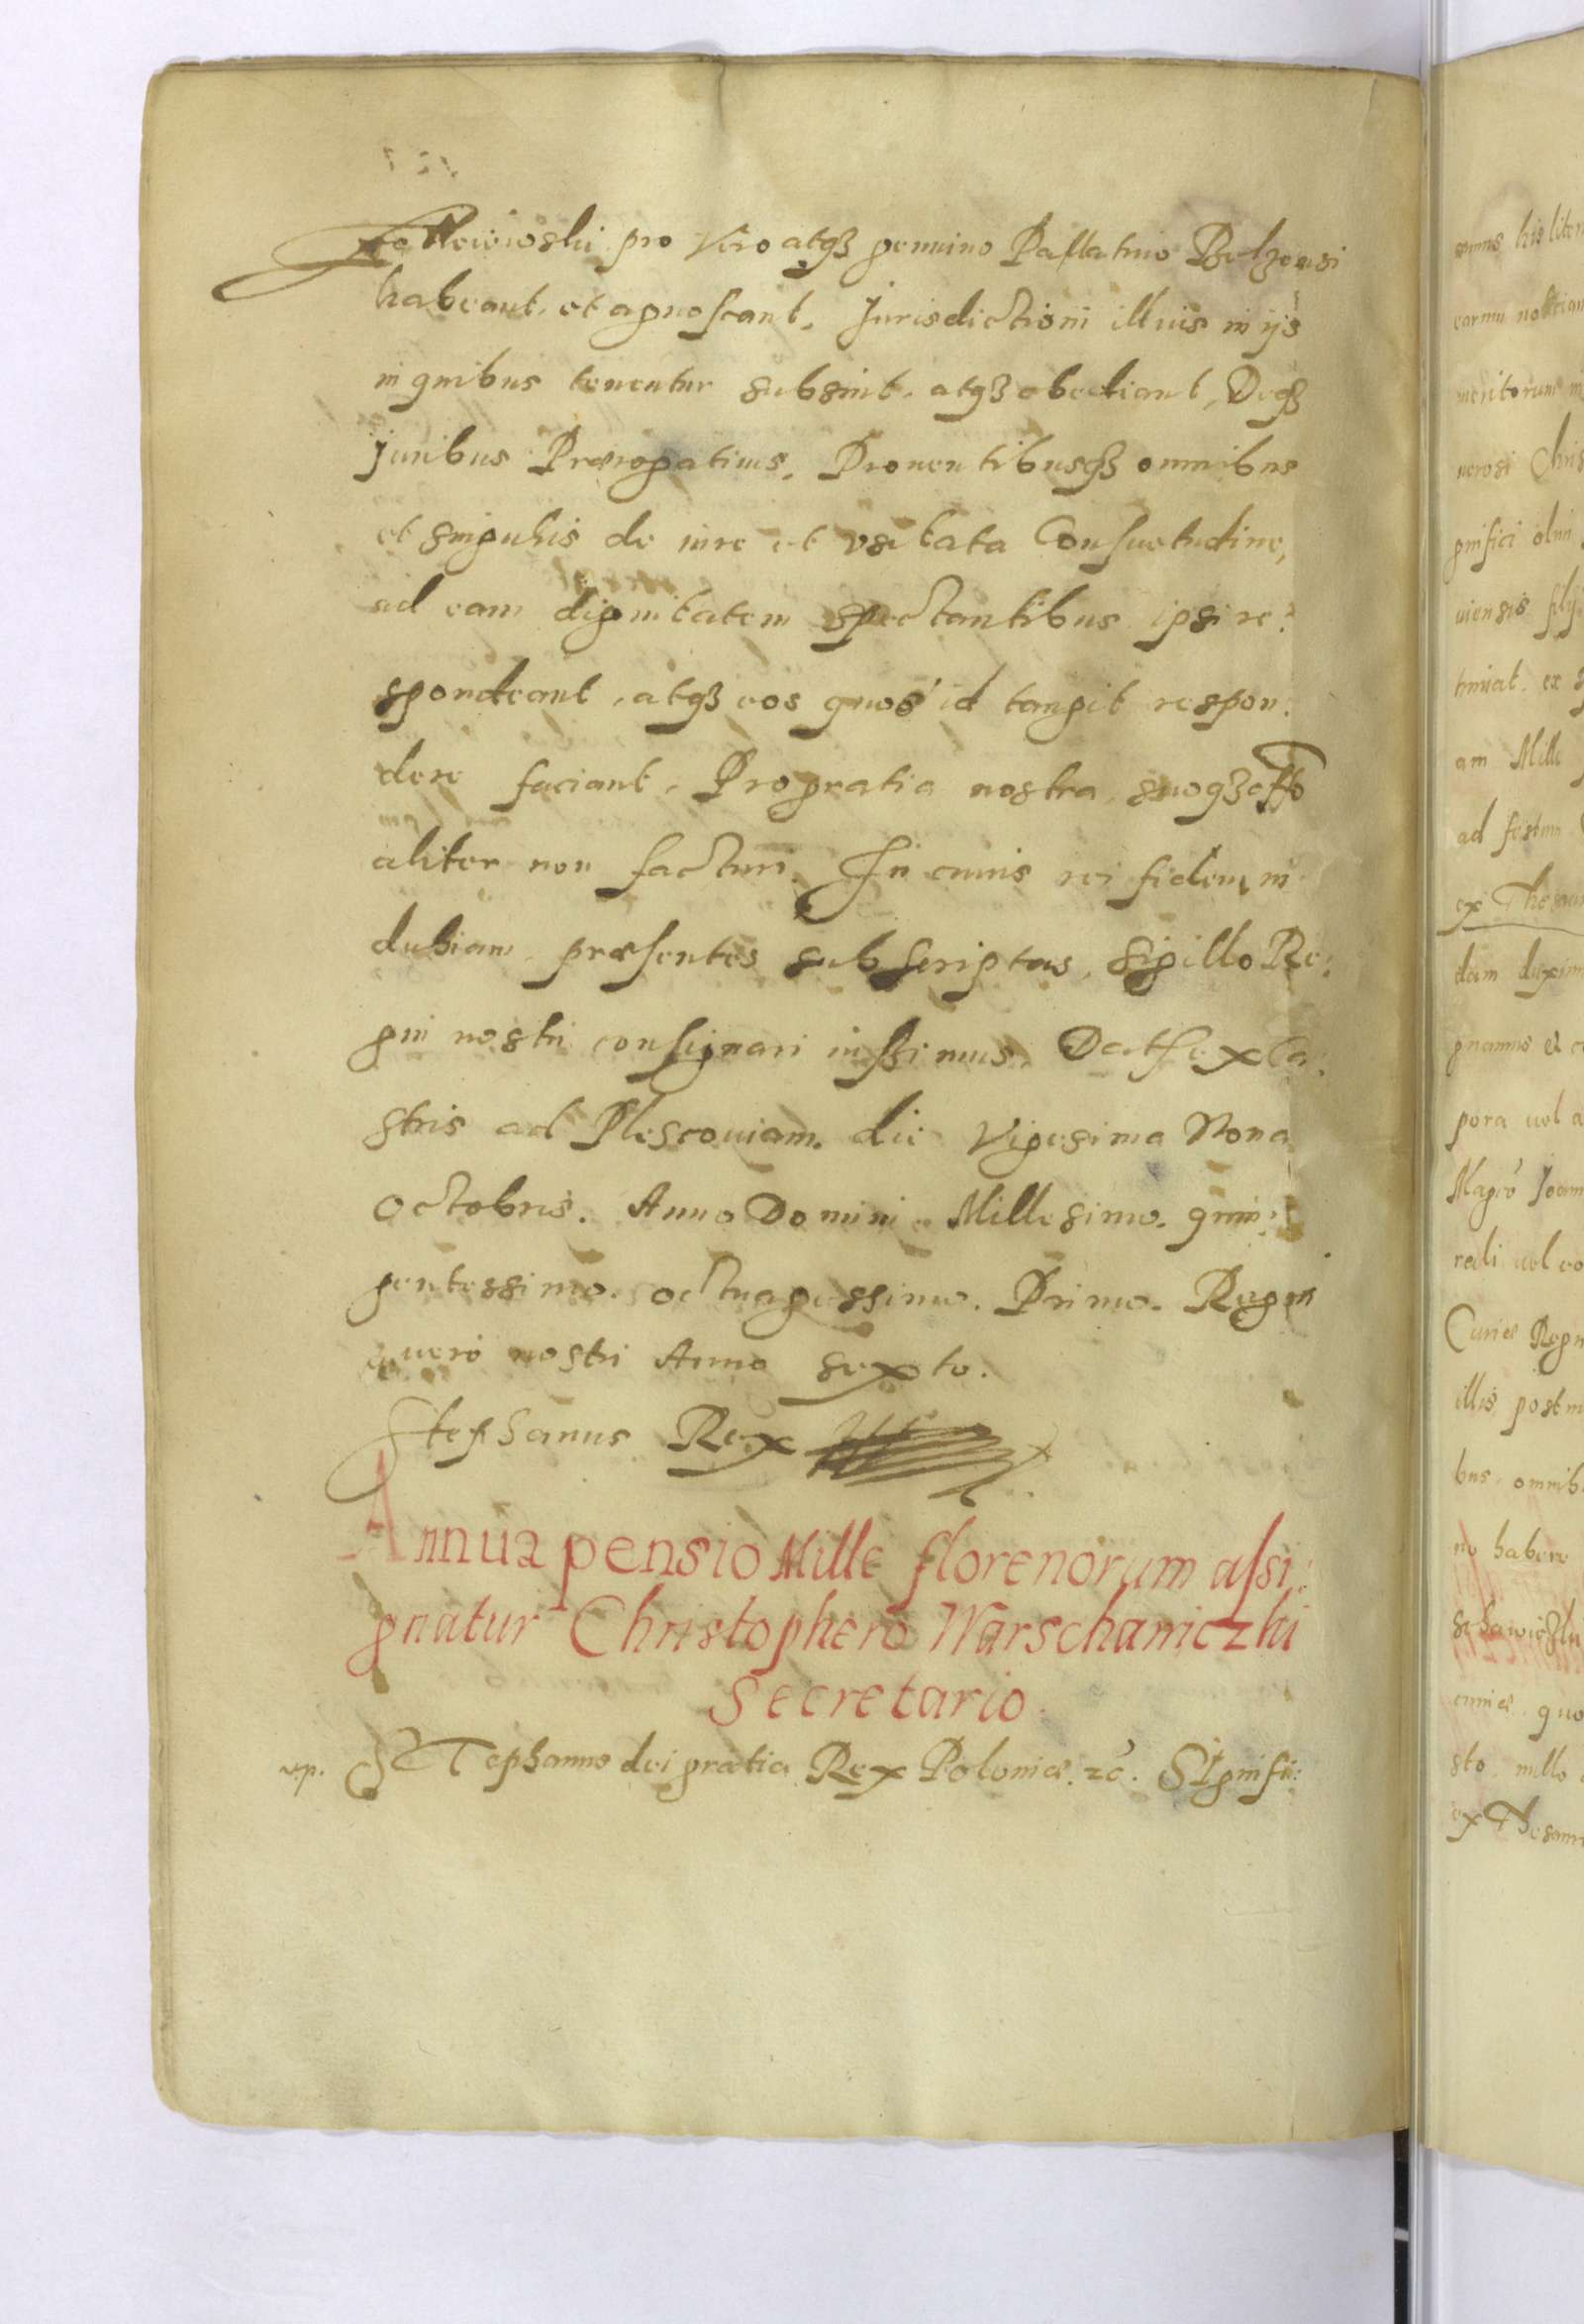 Zolkiewski pro Vero atq3 genuino Pallatino Belzensi
habeant, et agnoscant, Jurisdictioni illius in ijs
in quibus tenentur subsint, atq3 obediant, Deq3
Juribus Prærogatiuis, Prouentibusq3 omnibus
et singulis de iure et vsitata Consuetudine,
ad eam dignitatem spectantibus ipsi re:
spondeant, atq3 eos quos id tangit respon:
dere faciant, Pro gratia nostra, suoq3 offo
aliter non facturi. In cuius rei fidem in
dubiam, præsentes subscriptas, sigillo Re:
gni nostri consignari iussimus. Dat ex Ca:
stris ad Plescouiam. die Vigesima Nona
Octobris. Anno Domini Millesimo. quin:
gentessimo. octuagessimo. Primo. Regni
uero nostri Anno sexto.
Stephanus Rex
Annua pensio Mille florenorum assi:
gnatur Christophero Warschawiczki
Secretario
STephanus dei gratia Rex Poloniæ. &c. Signifi:
somus his liter
earum
meritorum
nerosi Chris
gnifici olim
uiensis filij
am Mille
ad festum
ex Thesau
dam duxim
gnamus et
pora uel a
Magco Joann
redi uel eo
Curiæ Regn
illis post m
bus omnib
no habere
quo
sto. mille
ex Thesauro